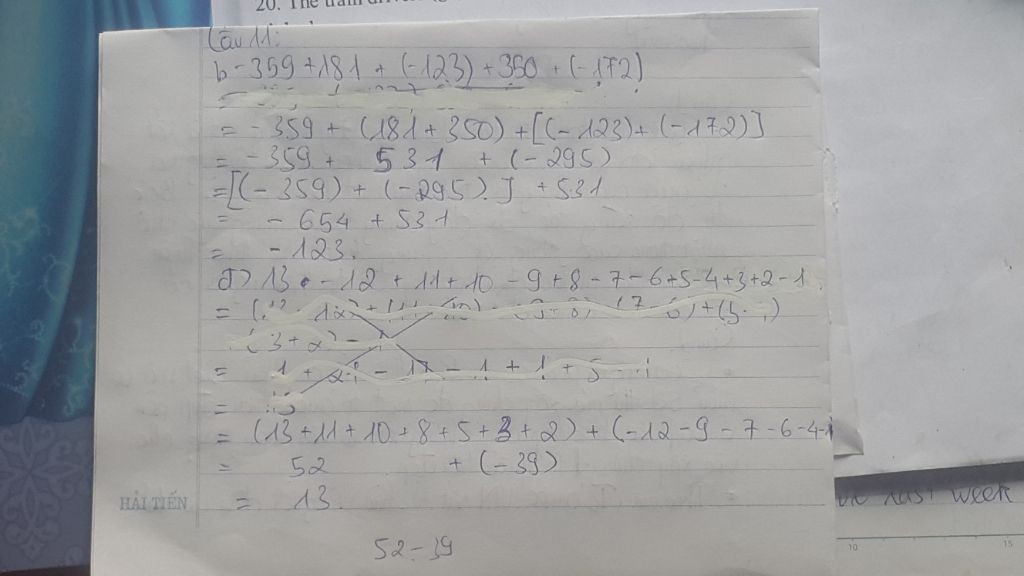 20. The train
Câu 11:
b - 359 + 181 + (-123) + 350 + (-172)
= -359 + (181 + 350) + [(-123) + (-172)]
= -359 + 531 + (-295)
= [(-359) + (-295).] + 531
= -654 + 531
= -123.
d) 13 - 12 + 11 + 10 - 9 + 8 - 7 - 6 + 5 - 4 + 3 + 2 - 1
= (13 + 11 + 10 + 8 + 5 + 3 + 2) + (-12 - 9 - 7 - 6 - 4 - 1
= 52 + (-39)
HẢI TIẾN
= 13.
last week
52 - 39
10 15